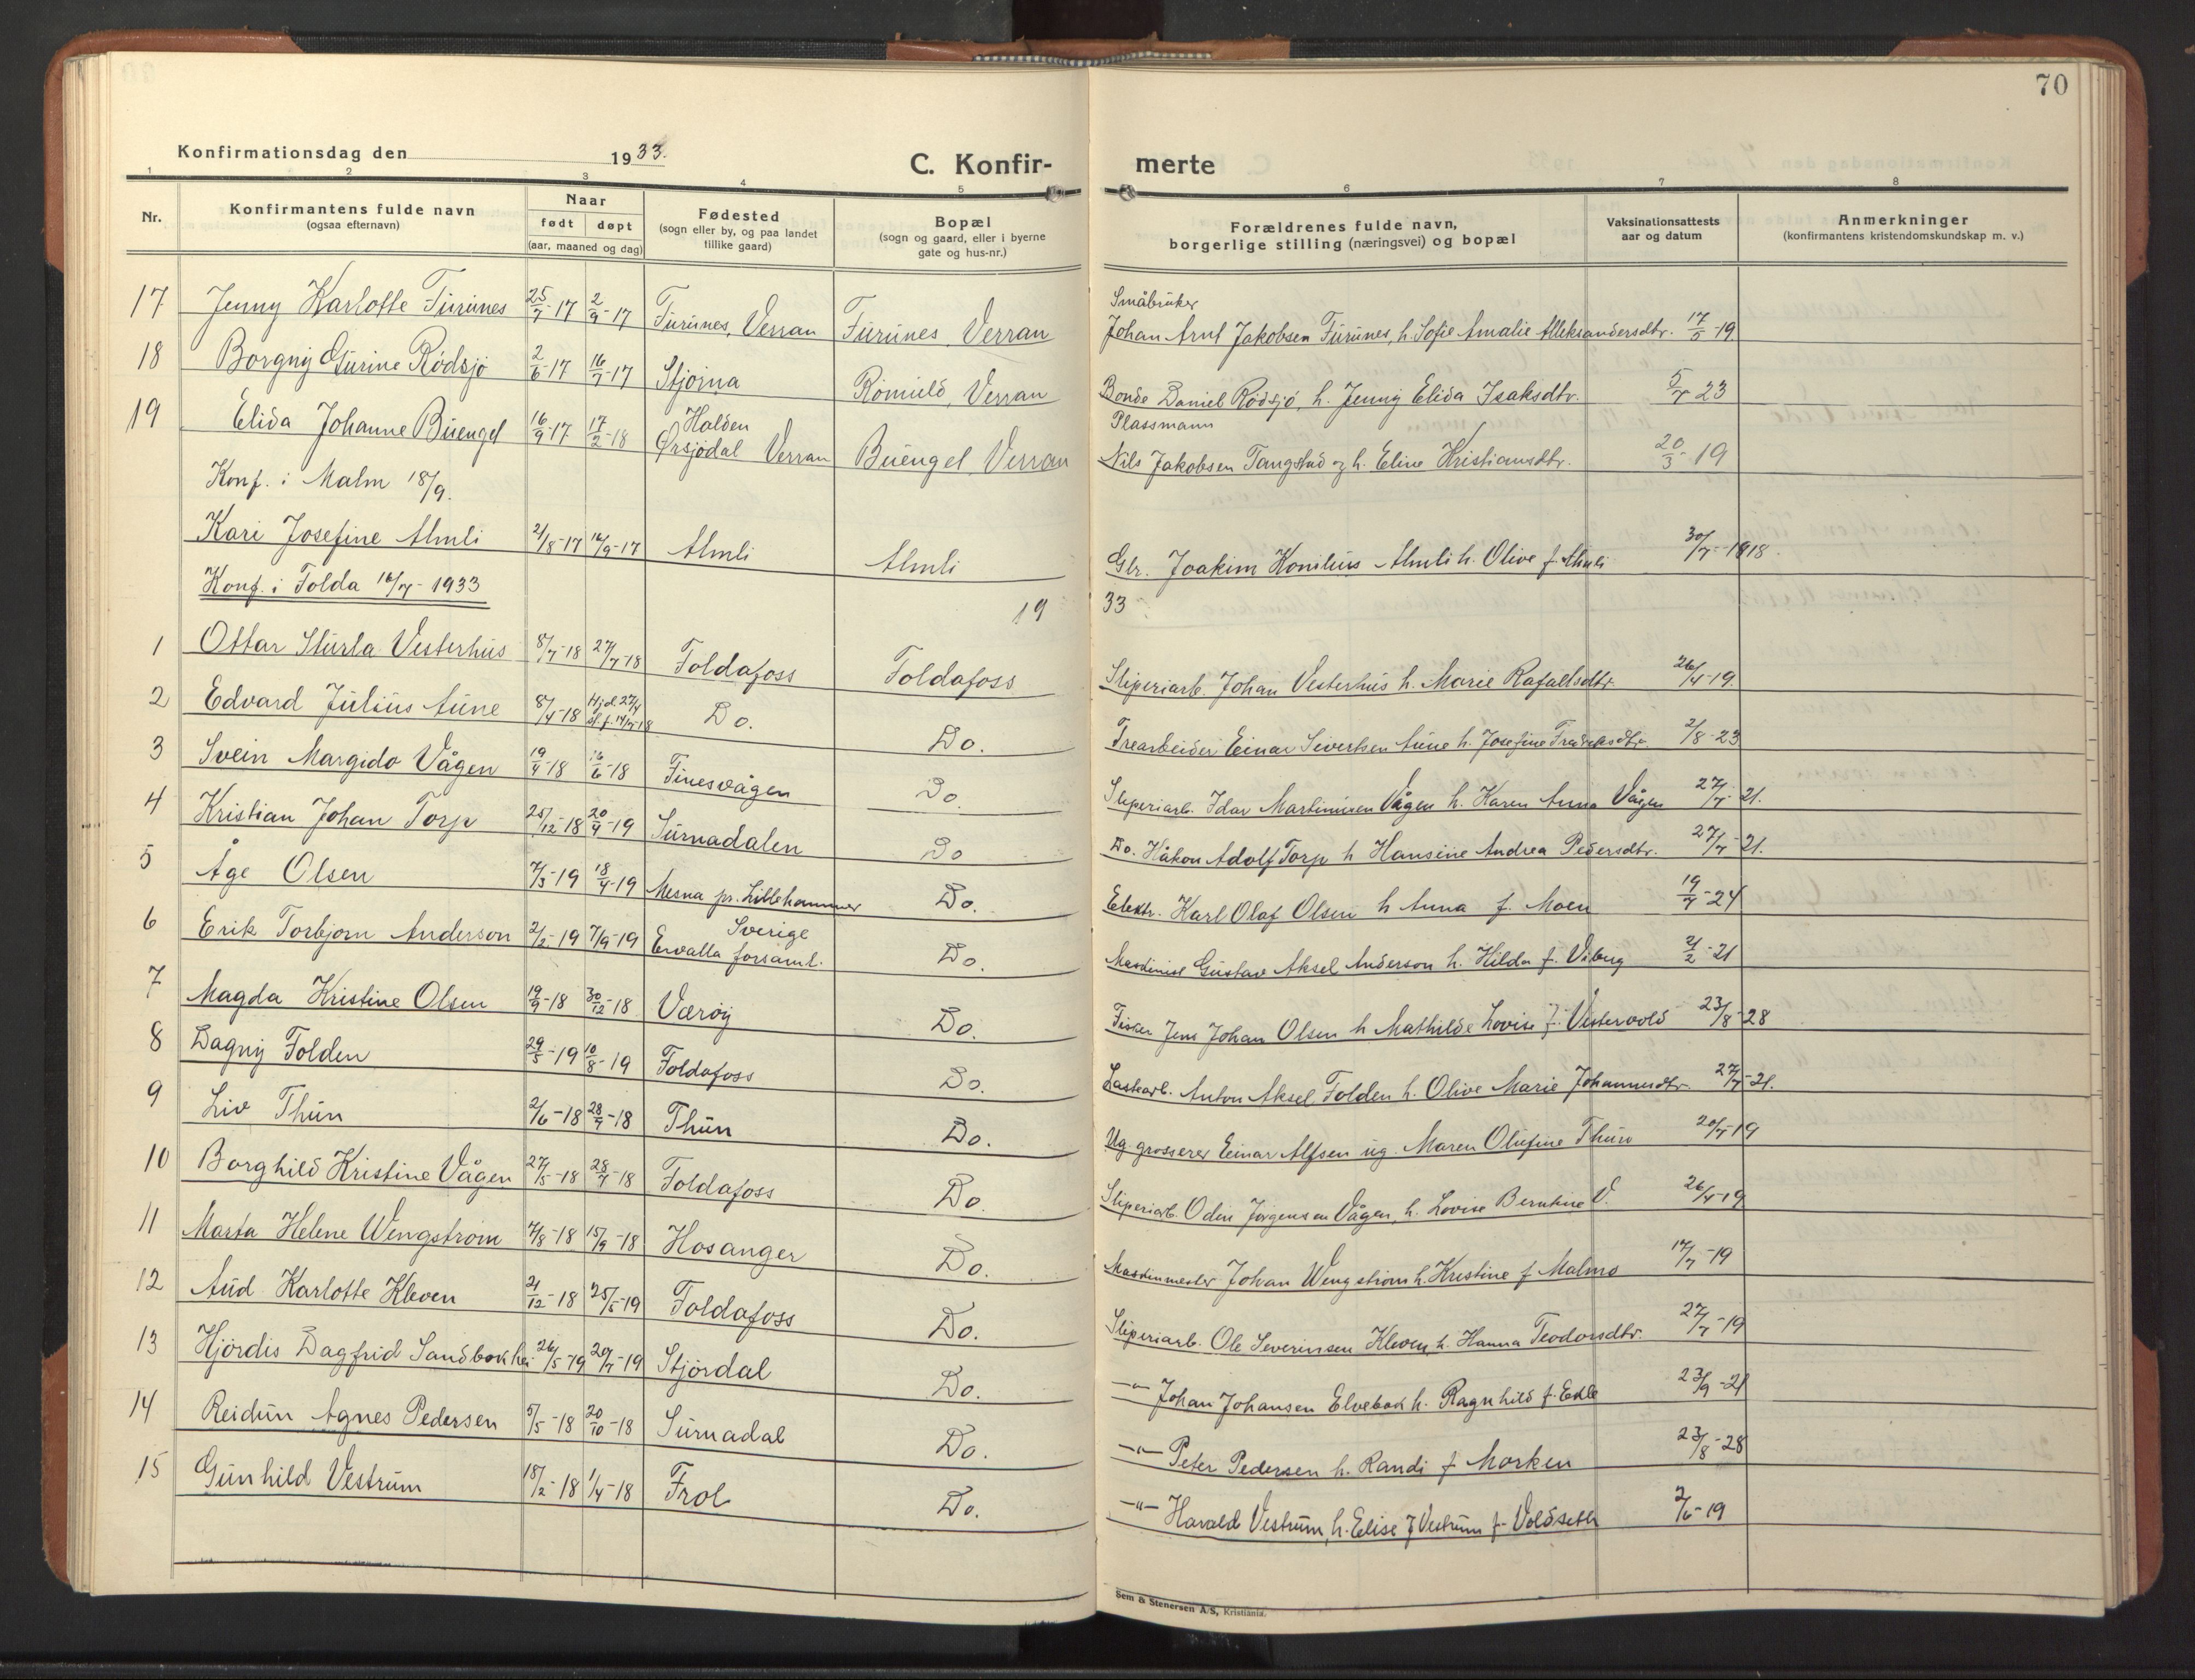 70
Konfirmationsdag den 1933.
C. Konfir-
merte
1 2 3 4 5 6 7 8
Nr.
Konfirmantens fulde navn
(ogsaa efternavn)
Naar
født døpt
(aar, maaned og dag)
Fødested
(sogn eller by, og paa landet
tillike gaard)
Bopæl
(sogn og gaard, eller i byerne
gate og hus-nr.)
Forældrenes fulde navn,
borgerlige stilling (næringsvei) og bopæl
Vaksinationsattests
aar og datum
Anmerkninger
(konfirmantens kristendomskundskap m. v.)
Småbruker
17 Jenny Karlotte Furunes 25/7-17 2/9-17 Furunes, Verran Furunes, Verran Johan Arnt Jakobsen Furunes, h. Sofie Amalie Alleksandersdtr. 17/5-19
18 Borgny Gurine Rødsjø 2/6-17 16/7-17 Stjørna Romuld, Verran Bonde Daniel Rødsjø, h. Jenny Elida Isaksdtr. 5/7 23
Holden Plassmann
19 Elida Johanne Buengel 16/9-17 17/2-18 Ørsjødal Verran Buengel, Verran Nils Jakobsen Tangstad og h. Eline Kristiansdtr. 20/3-19
Konf. i Malm 18/9.
Kari Josefine Almli 21/8-17 16/9-17 Almli Almli Gbr. Joakim Konilius Almli h. Olive f. Almli 30/7-1918.
Konf. i Folda 16/7-1933
19 33
1 Ottar Sturla Vesterhus 8/7-18 27/7-18 Foldafoss Foldafoss Sliperiarb. Johan Vesterhus h. Marie Rafaelsdtr. 26/4-19.
2 Edvard Julius Aune 8/4-18 Hjd. 27/4 st. f. 14/7-18 Do. Do. Trearbeider Einar Sivertsen Aune h. Josefine Fredriksdtr. 2/8-23
3 Svein Margido Vågen 19/4-18 16/6-18 Finesvågen Do. Sliperiarb. Idar Martinusen Vågen h. Karen Anna Vågen 27/7-21.
4 Kristian Johan Torp 25/12-18 20/4-19 Surnadalen Do Do. Håkon Adolf Torp h Hansine Andrea Pedersdtr. 27/7-21.
5 Åge Olsen 7/3-19 18/4-19 Mesna pr. Lillehammer Do. Elektr. Karl Olaf Olsen h Anna f. Moen 19/7-24
6 Erik Torbjørn Anderson 2/2-19 7/9-19 Sverige Ervalla forsaml. Do. Maskinist Gustav Aksel Anderson h. Hilda f. Viberg 21/2-21
7 Magda Kristine Olsen 19/9-18 30/12-18 Værøy Do. Fisker Jens Johan Olsen h Mathilde Lovise f. Vestervold 23/8-28
8 Dagny Folden 29/5-19 10/8-19 Foldafoss Do. Lastearb. Anton Aksel Folden h. Olive Marie Johannesdtr. 27/7-21.
9 Liv Thun 2/6-18 28/7-18 Thun Do. Ug grosserer Einar Alfsen ug. Maren Olufine Thun 20/7-19
10 Borghild Kristine Vågen 27/5-18 28/7-18 Foldafoss Do. Sliperiarb. Odin Jørgensen Vågen, h. Lovise Berntine V. 26/4-19
11 Marta Helene Wengstrøm 7/8-18 15/9-18 Hosanger Do. Maskinmester Johan Wengstrøm h. Kristine f Malmo 17/7-19
12 Aud Karlotte Kleven 21/12-18 25/5-19 Foldafoss Do. Sliperiarb. Ole Severinsen Kleven h. Hanna Teodorsdtr. 27/7-19
13 Hjørdis Dagfrid Sandbakhei 26/5-19 20/7-19 Stjørdal Do. —"— Johan Johansen Elvebak h. Ragnhild f. Eklo 23/9-21
14 Reidun Agnes Pedersen 5/5-18 20/10-18 Surnadal Do. —"— Peter Pedersen h. Randi f Morken 23/8-28
15 Gunhild Vestrum 18/2-18 1/4-18 Frol Do. —"— Harald Vestrum, h. Elise J Vestrum f. Voldseth 2/6-19
Sem & Stenersen A/S, Kristiania.